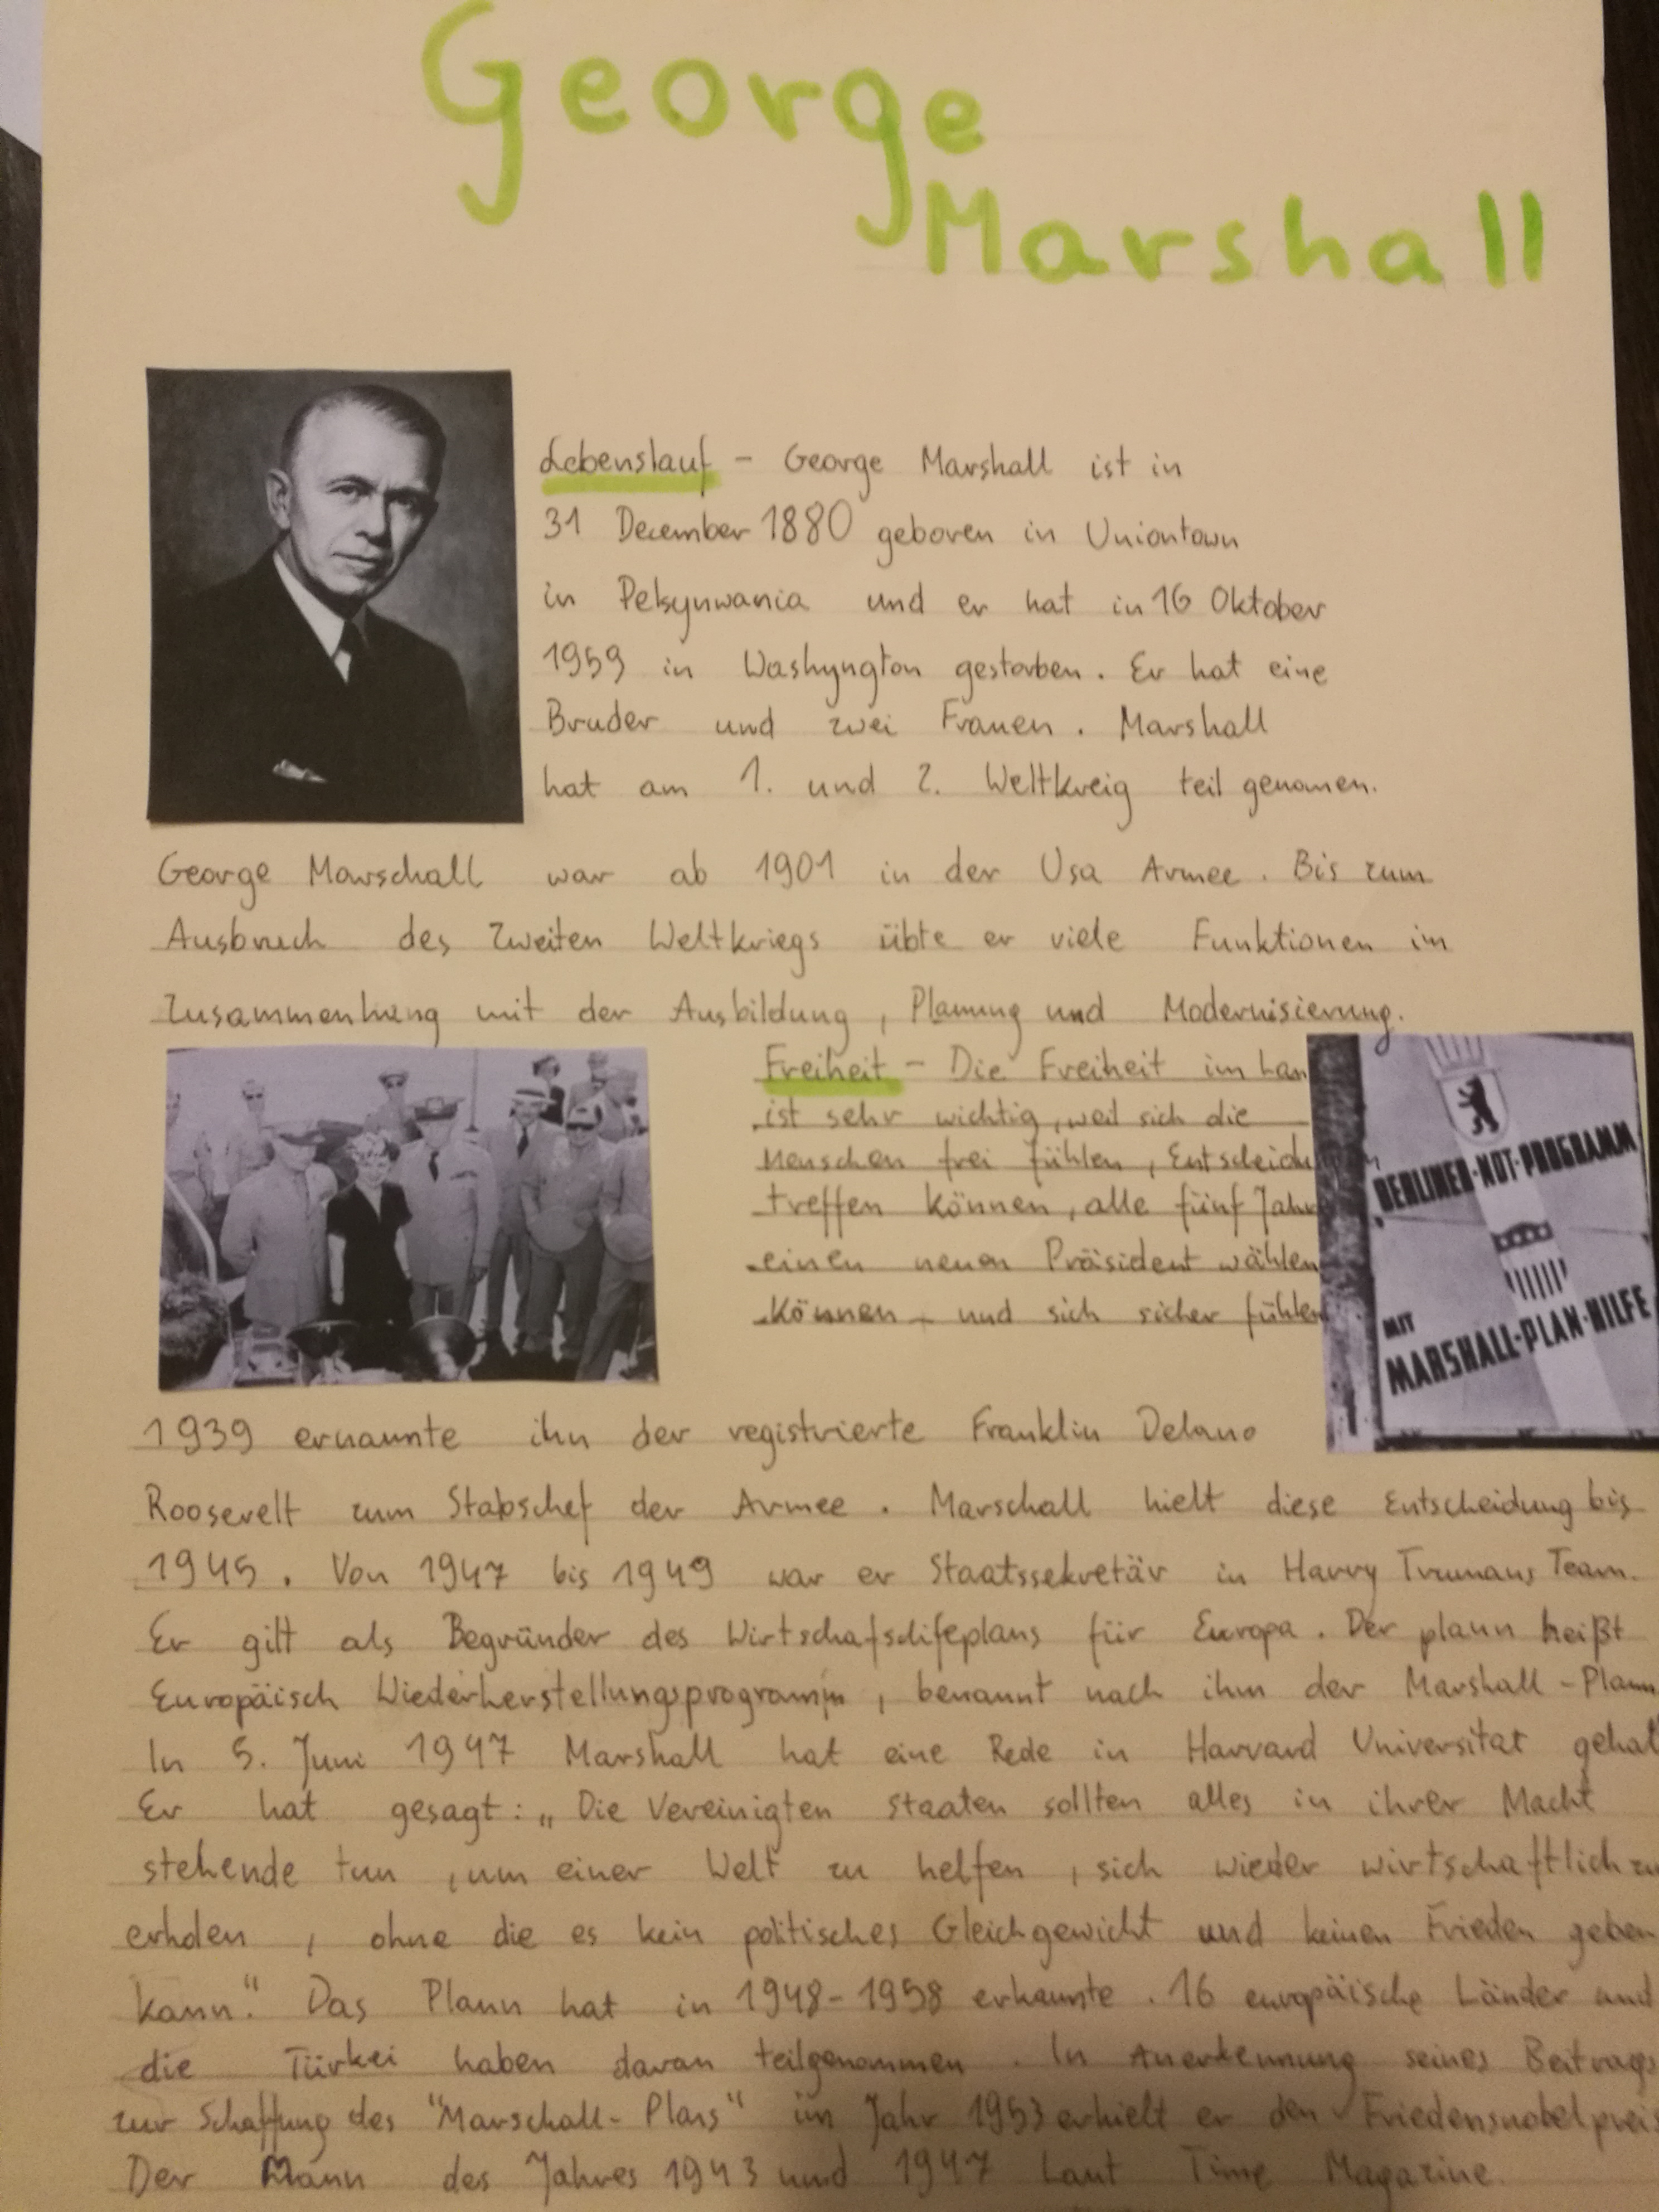 George
Marshall
Lebenslauf - George Marshall ist in
31 December 1880 geboren in Uniontown
in Pelsynwania und er hat in 16 Oktober
1959 in Washyngton gestorben. Er hat eine
Bruder und zwei Frauen. Marshall
hat am 1. und 2. Weltkreig teil genomen.
George Marschall war ab 1901 in der Usa Armee. Bis zum
Ausbruch des Zweiten Weltkriegs übte er viele Funktionen im
Zusammenhang mit der Ausbildung, Planung und Modernisierung.
Freiheit - Die Freiheit im Lan
ist sehr wichtig, weil sich die
Menschen frei fühlen, Entscheidu
treffen können, alle fünf Jahr
einen neuen Präsident wählen
können und sich sicher fühlen
BERLINER-NOT-PROGRAMM
MIT
MARSHALL-PLAN-HILFE
1939 ernannte ihn der registrierte Franklin Delano
Roosevelt zum Stabschef der Armee. Marschall hielt diese Entscheidung bis
1945. Von 1947 bis 1949 war er Staatssekretär in Harry Trumans Team.
Er gilt als Begründer des für Europa. Der plann heißt
Europäisch Wiederherstellungsprogramm, benannt nach ihm der Marshall-Plann
In 5. Juni 1947 Marshall hat eine Rede in Harvard Universitat gehal
Er hat gesagt: „Die Vereinigten Staaten sollten alles in ihrer Macht
stehende tun, um einer Welt zu helfen, sich wieder wirtschaftlich zu
erholen, ohne die es kein politisches Gleichgewicht und keinen Frieden geben
kann." Das Plann hat in 1948-1958 erkannte. 16 europäische Länder und
die Türkei haben davan teilgenommen. In Anerkennung seines Beitrags
zur Schaffung des "Marschall-Plans" im Jahr 1953 erhielt er den Friedensnobelpreis
Der Mann des Jahres 1943 und 1947 Laut Time Magazine